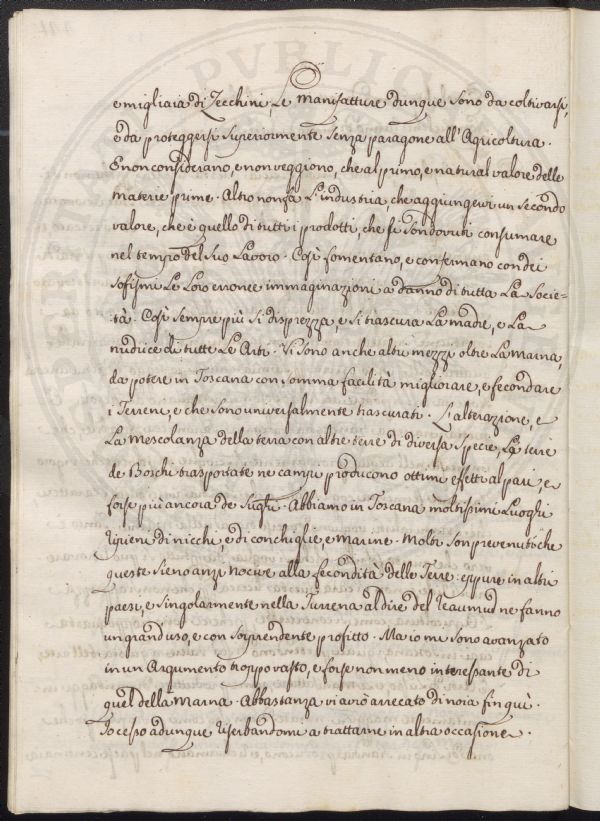 e migliaia di Zecchini; Le Manifatture dunque sono da coltivarsi,
e da proteggersi superiormente senza paragone all'Agricoltura.
E non considerano, e non veggiono, che al primo, e natural valore delle
materie prime. Altro non fà L'industria, che aggiungervi un secondo
valore, che è quello di tutti i prodotti, che si son dovuti consumare
nel tempo del suo Lavoro. Così fomentano, e confermano con dei
sofismi Le Loro erronee immaginazioni a danno di tutta La Socie=
tà. Così sempre più si disprezza e si trascura La madre, e La
nudrice di tutte Le Arti. Vi sono anche altri mezzi oltre La Marna,
da potere in Toscana con somma facilità migliorare, e fecondare
i Terreni, e che sono universalmente trascurati. L'alterazione, e
La mescolanza della terra con altre terre di diversa specie, La terra
de Boschi trasportate ne campi producono ottimi effetti al pari, e
forse più ancora de sughi. Abbiamo in Toscana moltissimi Luoghi
ripieni di nicchi, e di conchiglie, e Marine. Molti son prevenuti che
queste sieno anzi nocive alla fecondità delle Terre: eppure in altri
paesi, e singolarmente nella Turrena al dire del Reaumur ne fanno
un grand uso, e con sorprendente profitto. Ma io mi sono avanzato
in un Argumento troppo vasto, e forse non meno interessante di
quel della Marna. Abbastanza vi avrò arrecato di noia fin quì.
Io cesso adunque riserbandomi a trattarne in altra occasione.
PVBLIC